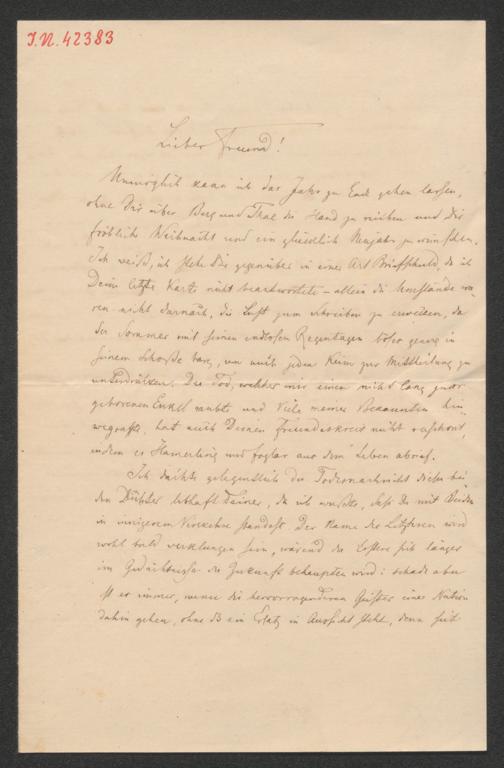 J.N. 42383
Lieber Freund!
Unmöglich kann ich das Jahr zu Ende gehen lassen,
ohne Dir über Berg und Thal die Hand zu reichen und Dir
fröhliche Weihnacht und ein glückliches Neujahr zu wünschen.
Ich weiß, ich stehe Dir gegenüber in einer Art Briefschuld, da ich
Deine letzte Karte nicht beantwortete – allein die Umstände wa-
ren nicht darnach, die Lust zum Schreiben zu erwecken, da
der Sommer mit seinen endlosen Regentagen böses genug in
seinem Schoße barg, um auch jeden Keim zur Mittheilung zu
unterdrücken. Der Tod, welcher mir einen nicht lang zuvor
geborenen Enkel raubte und Viele meiner Bekannten hin-
wegraffte, hat auch Deinen Freundeskreis nicht verschont,
indem er Hamerling und Foglar aus dem Leben abrief.
Ich dachte gelegentlich der Todesnachricht dieser bei-
den Dichter lebhaft Deiner, da ich wußte, daß Du mit Beiden
in innigerem Verkehre standest. Der Name des Letzteren wird
wohl bald verklungen sein, wärend der Erstere sich länger
im Gedächtnisse der Zukunft behaupten wird: schade aber
ist es immer, wenn die hervorragenderen Geister einer Nation
dahin gehen, ohne daß ein Ersatz in Aussicht steht, denn seit